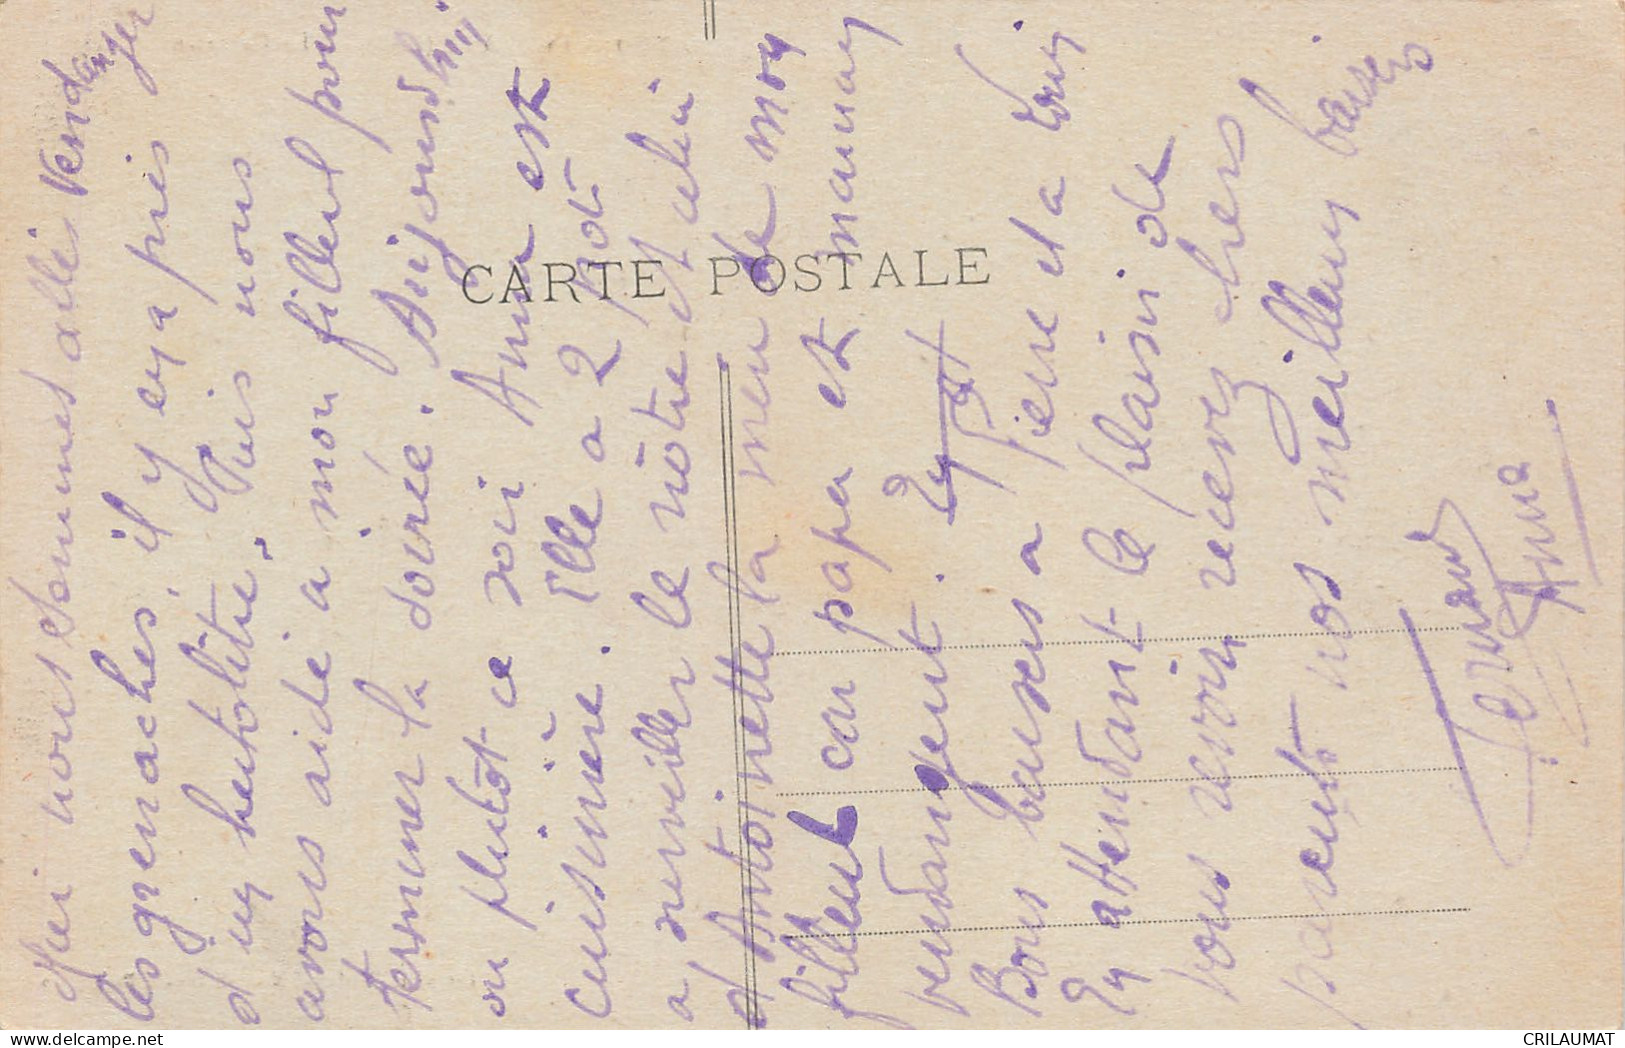 hui nous sommes allés vendanger
les grenaches, il y en a près
d'un hectolitre, Puis nous
avons aidé a mon filleul pour
terminer la soirée. Aujourd'hui
ou plutôt ce soir Anna est
cuisinière. Elle a 2 pot
a surveiller le nôtre et celui
d'Antoinette la mère de mon
filleul car papa et maman
vendangent.
Bons baisers a Pierre et a
En attendant le plaisir de
vous revoir, recevez chers
parents nos meilleurs baisers
Fernand
Anna
CARTE POSTALE
delcampe.net
CRILAUMAT